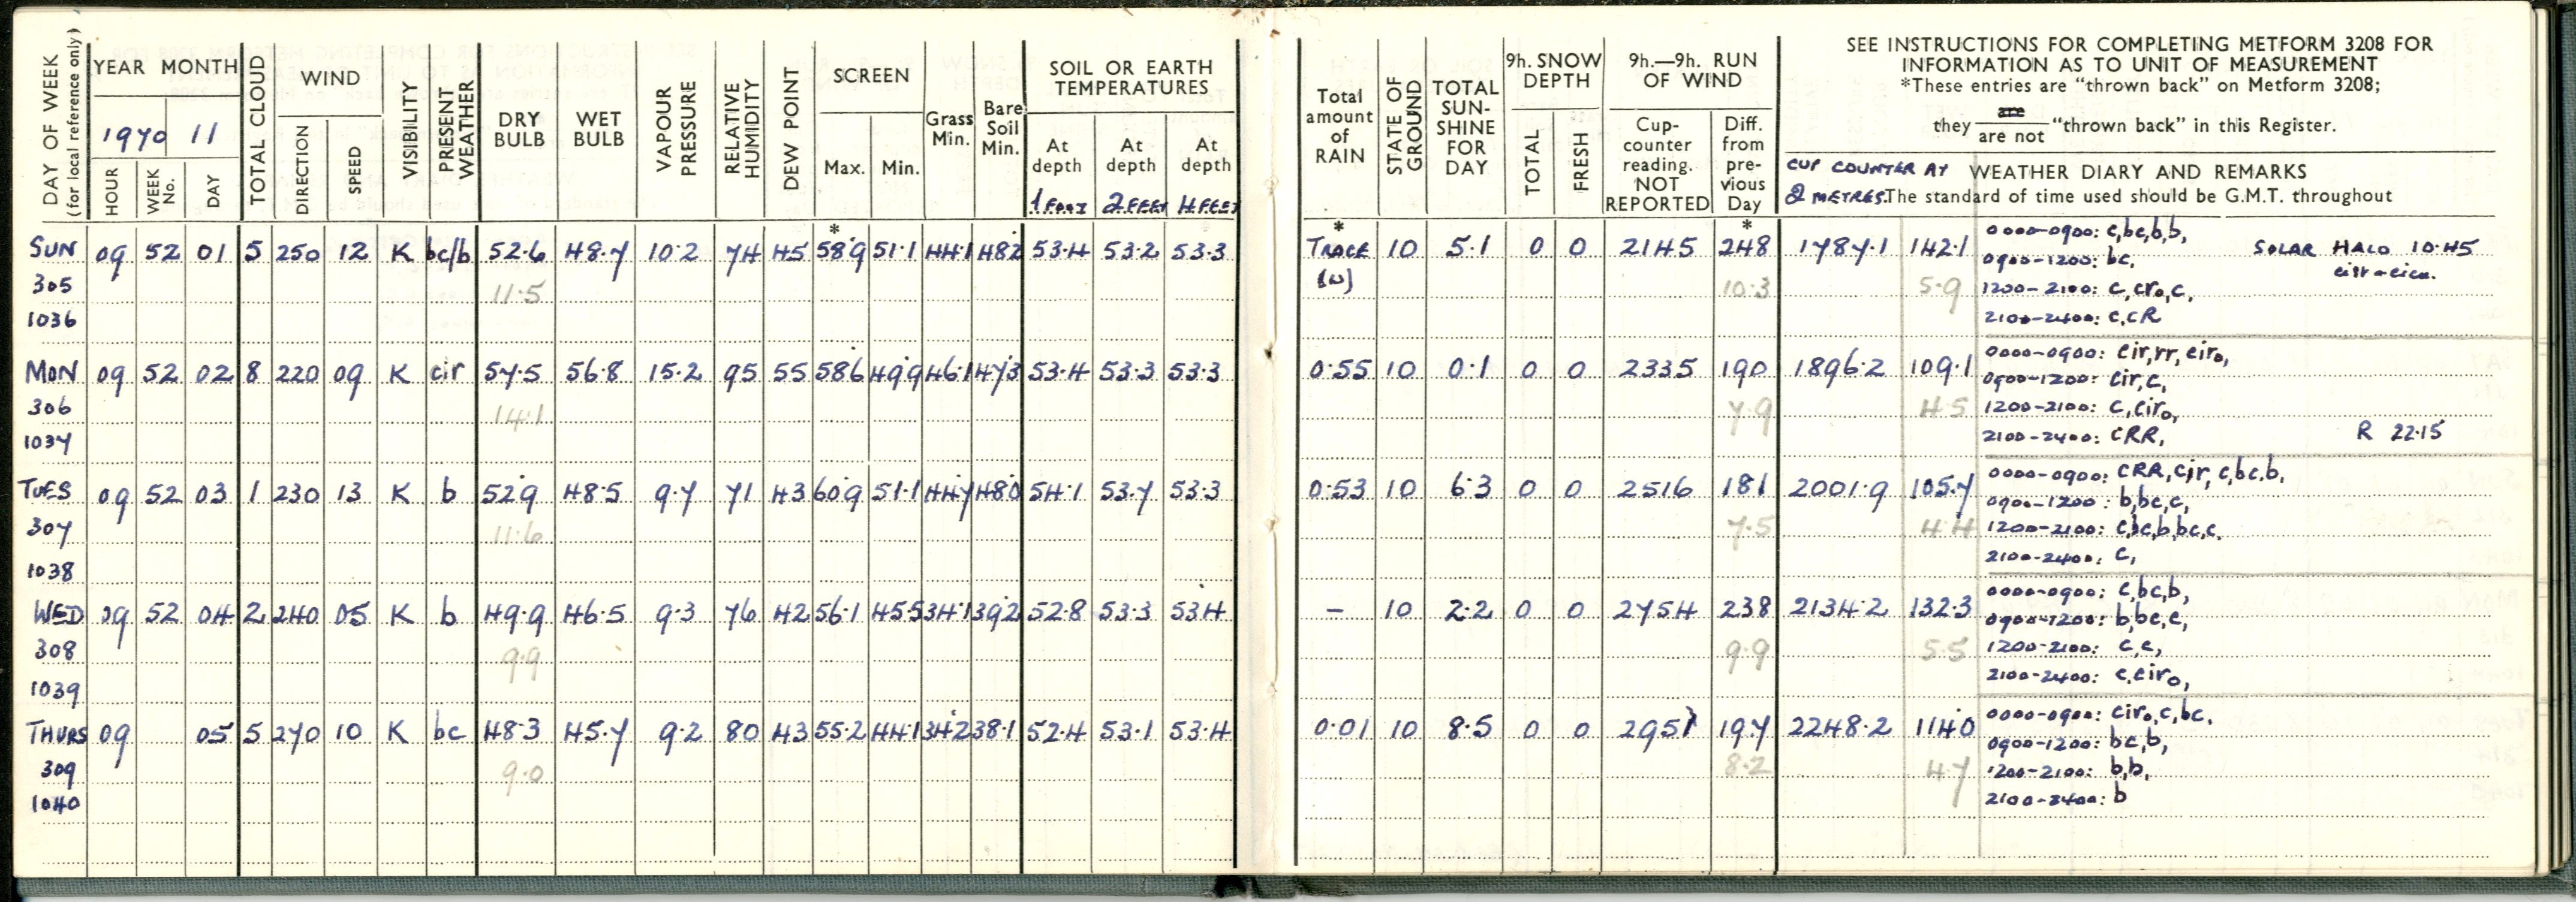 DAY OF WEEK (for local reference only)
YEAR MONTH
1970 11
HOUR WEEK No. DAY
TOTAL CLOUD
WIND
DIRECTION SPEED
VISIBILITY
PRESENT WEATHER
DRY BULB
WET BULB
VAPOUR PRESSURE
RELATIVE HUMIDITY
DEW POINT
SCREEN
Max. Min.
Grass Min.
Bare Soil Min.
SOIL OR EARTH TEMPERATURES
At depth At depth At depth
1 FOOT 2 FEET 4 FEET
Total amount of RAIN
STATE OF GROUND
TOTAL SUN-SHINE FOR DAY
9h. SNOW DEPTH
TOTAL FRESH
9h.—9h. RUN OF WIND
Cup-counter reading. NOT REPORTED
Diff. from pre-vious Day
SEE INSTRUCTIONS FOR COMPLETING METFORM 3208 FOR
INFORMATION AS TO UNIT OF MEASUREMENT
*These entries are "thrown back" on Metform 3208;
they are / are not "thrown back" in this Register.
CUP COUNTER AT WEATHER DIARY AND REMARKS
2 METRES. The standard of time used should be G.M.T. throughout
* * *
SUN 09 52 01 5 250 12 K bc/b 52.6 48.7 10.2 74 45 58.9 51.1 44.1 48.2 53.4 53.2 53.3 TRACE 10 5.1 0 0 2145 248 1787.1 142.1 0000-0900: c,bc,b,b,
SOLAR HALO 10.45
(W) 0900-1200: bc,
305 11.5 10.3 5.9 1200-2100: c,cr₀,c,
1036 2100-2400: c,cR
MON 09 52 02 8 220 09 K cir 57.5 56.8 15.2 95 55 58.6 49.9 46.1 47.3 53.4 53.3 53.3 0.55 10 0.1 0 0 2335 190 1896.2 109.1 0000-0900: cir,rr,cir₀,
0900-1200: cir,c,
306 14.1 7.9 4.5 1200-2100: c,cir₀,
1037 2100-2400: cRR, R 22.15
TUES 09 52 03 1 230 13 K b 52.9 48.5 9.7 71 43 60.9 51.1 44.7 48.0 54.1 53.7 53.3 0.53 10 6.3 0 0 2516 181 2001.9 105.7 0000-0900: cRR,cir,c,bc,b,
0900-1200: b,bc,c,
307 11.6 7.5 4.4 1200-2100: c,bc,b,bc,c,
1038 2100-2400: c,
WED 09 52 04 2 240 05 K b 49.9 46.5 9.3 76 42 56.1 45.5 34.1 39.2 52.8 53.3 53.4 – 10 2.2 0 0 2754 238 2134.2 132.3 0000-0900: c,bc,b,
0900-1200: b,bc,c,
308 9.9 9.9 5.5 1200-2100: c,c,
1039 2100-2400: c,cir₀,
THURS 09 05 5 270 10 K bc 48.3 45.7 9.2 80 43 55.2 44.1 34.2 38.1 52.4 53.1 53.4 0.01 10 8.5 0 0 2951 197 2248.2 114.0 0000-0900: cir₀,c,bc,
0900-1200: bc,b,
309 9.0 8.2 4.7 1200-2100: b,b,
1040 2100-2400: b